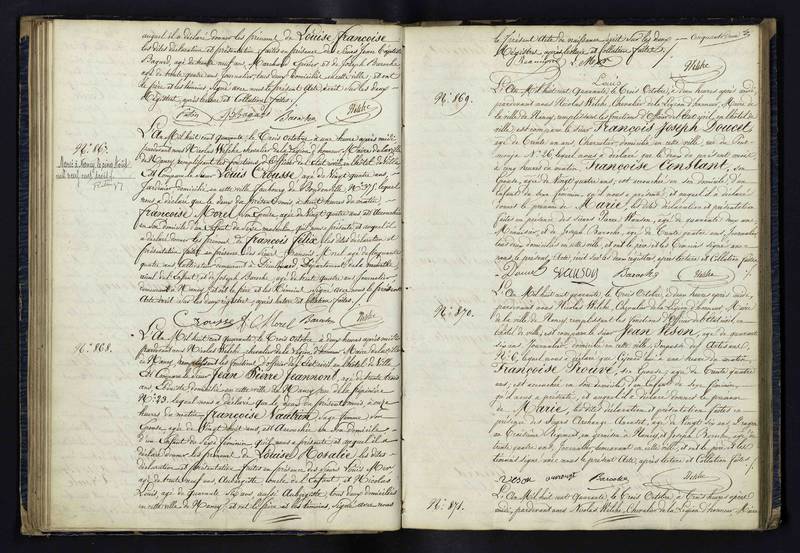 auquel il a déclaré donner les prénoms de Louise Françoise
les dites déclaration et présentation faites en présence des Sieurs Jean Baptiste
Bagard, âgé de neuf ans, Marchand Epicier et de Joseph Baroche
âgé de trente quatre ans journalier tous deux domiciliés en cette ville, et ont
le père et les témoins, signé avec nous le présent Acte écrit sur les deux
Registres, après lecture et Collation faites.
Bagard Baroche Welche
N°. 867.
L'An Mil huit cent quarante, le Trois Octobre, à une heure après midi
pardevant nous Nicolas Welche, chevalier de la Légion d'honneur, Maire de la Ville
de Nancy, remplissant les fonctions d'officier de l'état civil en l'hôtel de Ville
Est Comparu le Sieur Louis Crousse, âgé de Vingt quatre ans,
Jardinier domicilié en cette ville faubourg N°. 95, lequel
nous a déclaré que le deux du présent mois à huit heures du matin,
Françoise Morel son Epouse, âgée de Vingt quatre ans est accouchée
en son domicile d'un Enfant du Sexe masculin qu'il nous a présenté, et auquel il a
déclaré donner les prénoms de François Félix, les dites déclaration et
présentation faites en présence des Sieurs Morel âgé de Cinquante
quatre ans
et de Joseph Baroche, âgé de trente quatre ans journalier
domicilié à Nancy, et ont le père et les témoins signé avec nous le présent
Acte écrit sur les deux registres, après lecture et Collation faites.
Crousse Morel Baroche Welche
N°. 868.
L'An Mil huit cent Quarante, le Trois Octobre, à deux heures après midi
pardevant nous Nicolas Welche, chevalier de la Légion d'honneur, Maire de la Ville
de Nancy, remplissant les fonctions d'officier de l'Etat civil en l'hôtel de Ville
Est Comparu le Sieur Jean Pierre Jeannont, âgé de trente trois
ans, domicilié en cette ville de Nancy, rue de la Pépinière
N°. 23. lequel nous a déclaré que le deux du présent mois, à onze
heures du matin, Françoise Vautrin, Sage femme, son
Epouse, âgée de Vingt huit ans est accouchée en son domicile
d'un Enfant du Sexe féminin qu'il nous a présenté, et auquel il a
déclaré donner les prénoms de Louise Rosalie les dites
déclaration et présentation faites en présence des Sieurs Louis
âgé de trente neuf ans Aubergiste oncle de l'Enfant, et Nicolas
Louis, âgé de quarante Six ans aussi Aubergiste, tous deux domiciliés
en cette ville de Nancy, et ont le père et les témoins, signé avec nous
le présent Acte de naissance écrit sur les deux
Registres, après lecture et Collation faites.
Welche
N°. 869.
L'An Mil huit cent Quarante, le Trois Octobre, à deux heures après midi,
pardevant nous Nicolas Welche, Chevalier de la Légion d'honneur, Maire
de la ville de Nancy, remplissant les fonctions d'Officier de l'état civil, en l'hôtel de
ville, est comparu le sieur François Joseph Doucet
âgé de Trente un ans, domicilié en cette ville, rue
N°. 26, lequel nous a déclaré que le deux du présent mois
à cinq heures du matin, Françoise Constant, son
Epouse, âgée de vingt quatre ans, est accouchée en son domicile d'un
Enfant du Sexe féminin, qu'il nous a présenté, et auquel il a déclaré
donner le prénom de Marie, les dites déclaration et présentation
faites en présence des Sieurs Pierre
et de Joseph Baroche, âgé de Trente quatre ans, Journalier
tous deux domiciliés en cette ville, et ont le père et les témoins signé avec
nous le présent acte, écrit sur les deux registres, après lecture et Collation faites.
Doucet Baroche Welche
N°. 870.
L'An Mil huit cent quarante, le Trois Octobre, à deux heures après midi,
pardevant nous Nicolas Welche, Chevalier de la Légion d'honneur, Maire
de la ville de Nancy, remplissant les fonctions d'Officier de l'état civil en
l'hôtel de ville, est comparu le sieur Jean Veson, âgé de quarante
six ans, Journalier domicilié en cette ville, Impasse des Artisans
N°. 6, lequel nous a déclaré que aujourd'hui à une heure du matin,
Françoise Trouvé, son Epouse, âgée de Trente quatre
ans, est accouchée en son domicile, d'un Enfant du Sexe féminin
qu'il nous a présenté, et auquel il a déclaré donner le prénom
de Marie, les dites déclaration et présentation faites en
présence des Sieurs âgé de Vingt Six ans, Dragon
au Régiment en garnison à Nancy, et Joseph Baroche, âgé de
trente quatre ans, Journalier, demeurant en cette ville, et ont le père et les
témoins signé avec nous le présent Acte, après lecture et Collation faites.
Veson Baroche Welche
N°. 871.
L'An Mil huit cent Quarante, le Trois Octobre, à Trois heures après
midi, pardevant nous Nicolas Welche, Chevalier de la Légion d'honneur, Maire